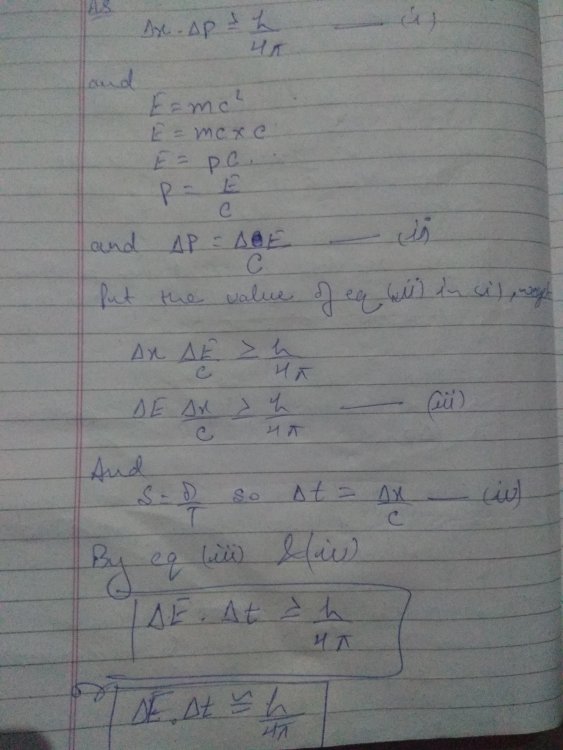 As
Δx . ΔP ≥ h/4π —— (i)
and
E = mc²
E = mc x c
E = pc . . .
P = E/C
and ΔP = ΔE/C —— (ii)
Put the value of eq (ii) in (i), we get
Δx ΔE/C ≥ h/4π
ΔE Δx/C ≥ h/4π —— (iii)
And
S = D/T so Δt = Δx/C — (iv)
By eq (iii) & (iv)
ΔE . Δt ≥ h/4π
ΔE . Δt ≅ h/4π